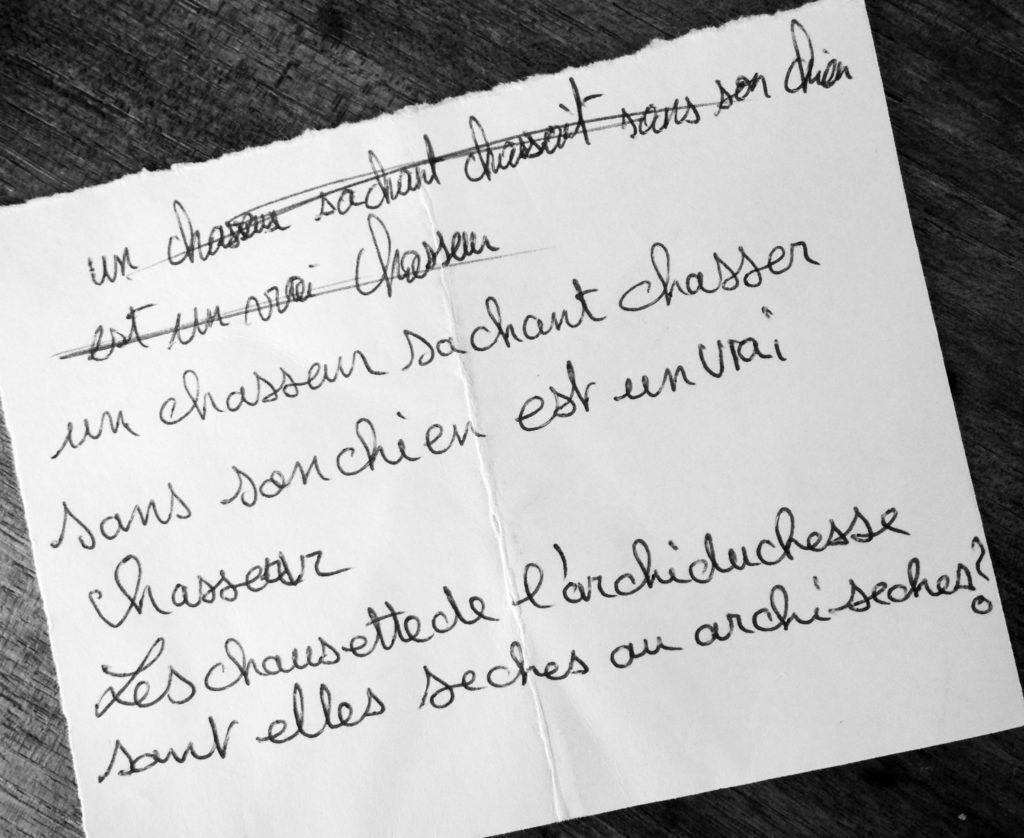 un chasseur sachant chassait sans son chien
est un vrai chasseur
un chasseur sachant chasser
sans son chien est un vrai
chasseur
Les chausette de l'archiduchesse
sont elles seches ou archi-seches?